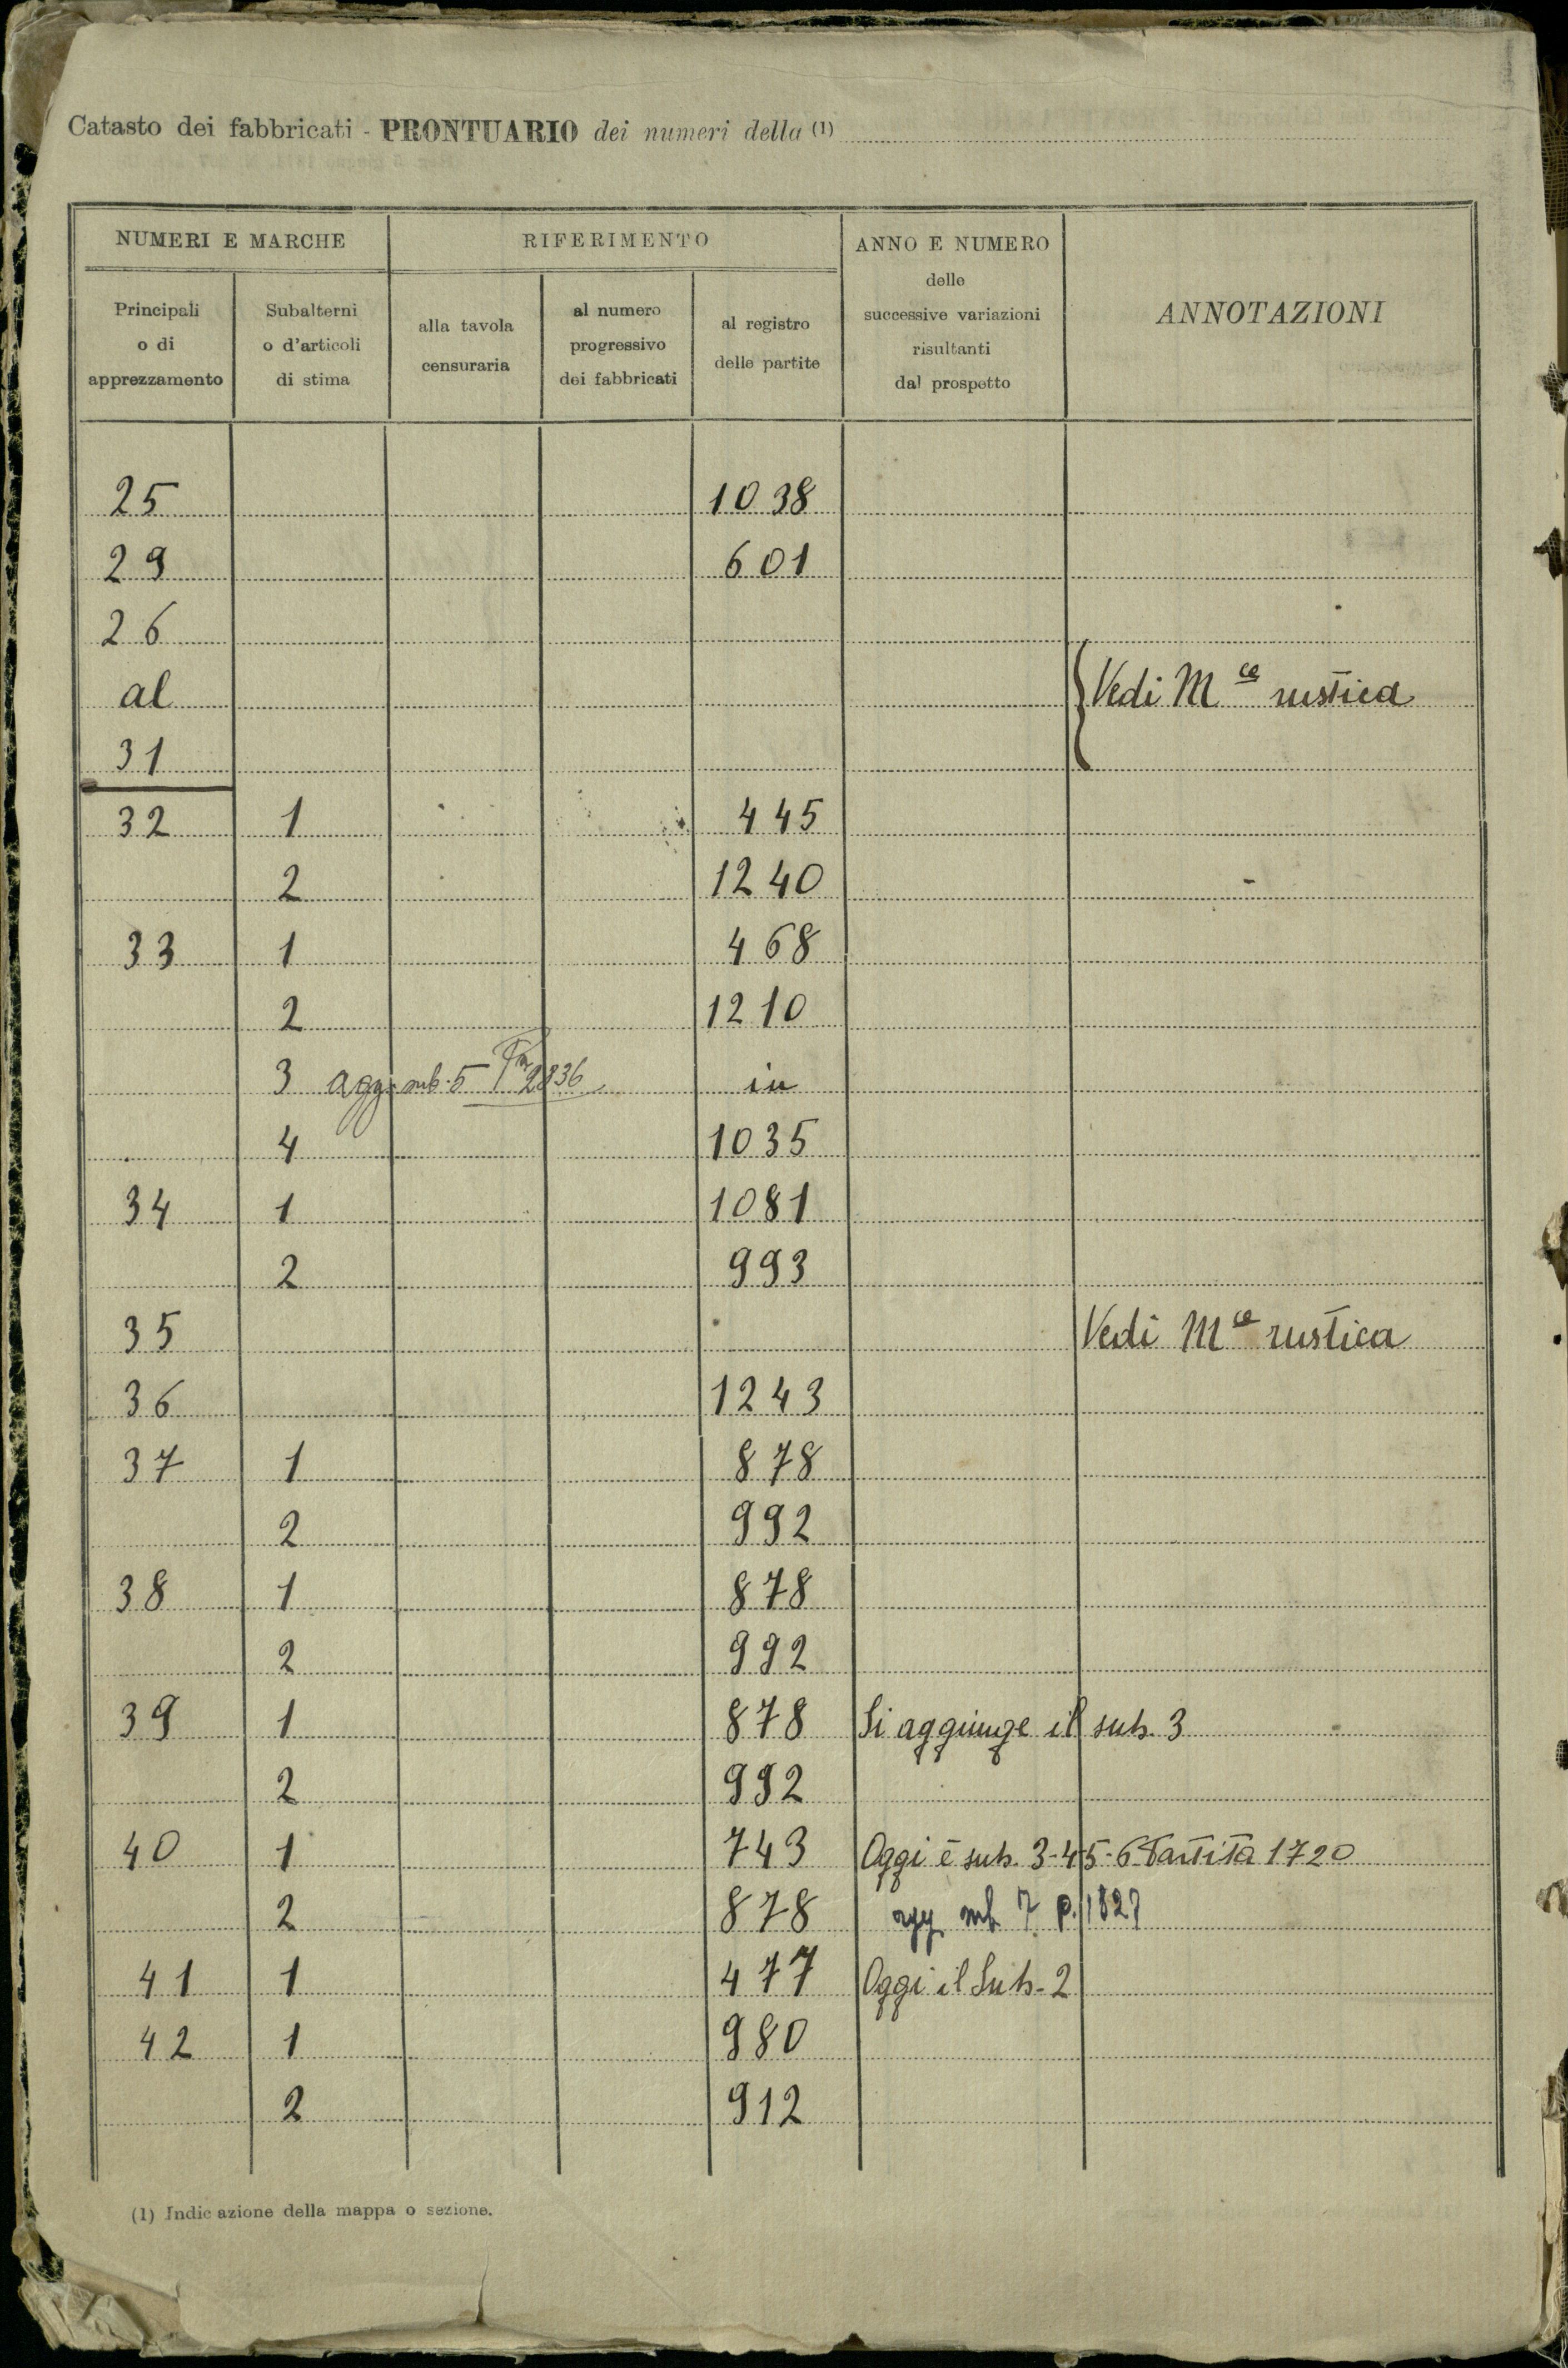 Catasto dei fabbricati - PRONTUARIO dei numeri della (1)
NUMERI E MARCHE RIFERIMENTO ANNO E NUMERO delle successive variazioni risultanti dal prospetto ANNOTAZIONI
Principali o di apprezzamento Subalterni o d'articoli di stima alla tavola censuraria al numero progressivo dei fabbricati al registro delle partite
25 1038
29 601
26
al Vedi M ce rustica
31
32 1 445
2 1240
33 1 468
2 1210
3 agg. sub. 5 2836 in
4 1035
34 1 1081
2 993
35 Vedi M ce rustica
36 1243
37 1 878
2 992
38 1 878
2 992
39 1 878 Si aggiunge il sub. 3
2 992
40 1 743 Oggi è sub. 3-4-5-6 Partita 1720
2 878 agg sub 7 p. 1827
41 1 477 Oggi il Sub-2
42 1 980
2 912
(1) Indicazione della mappa o sezione.